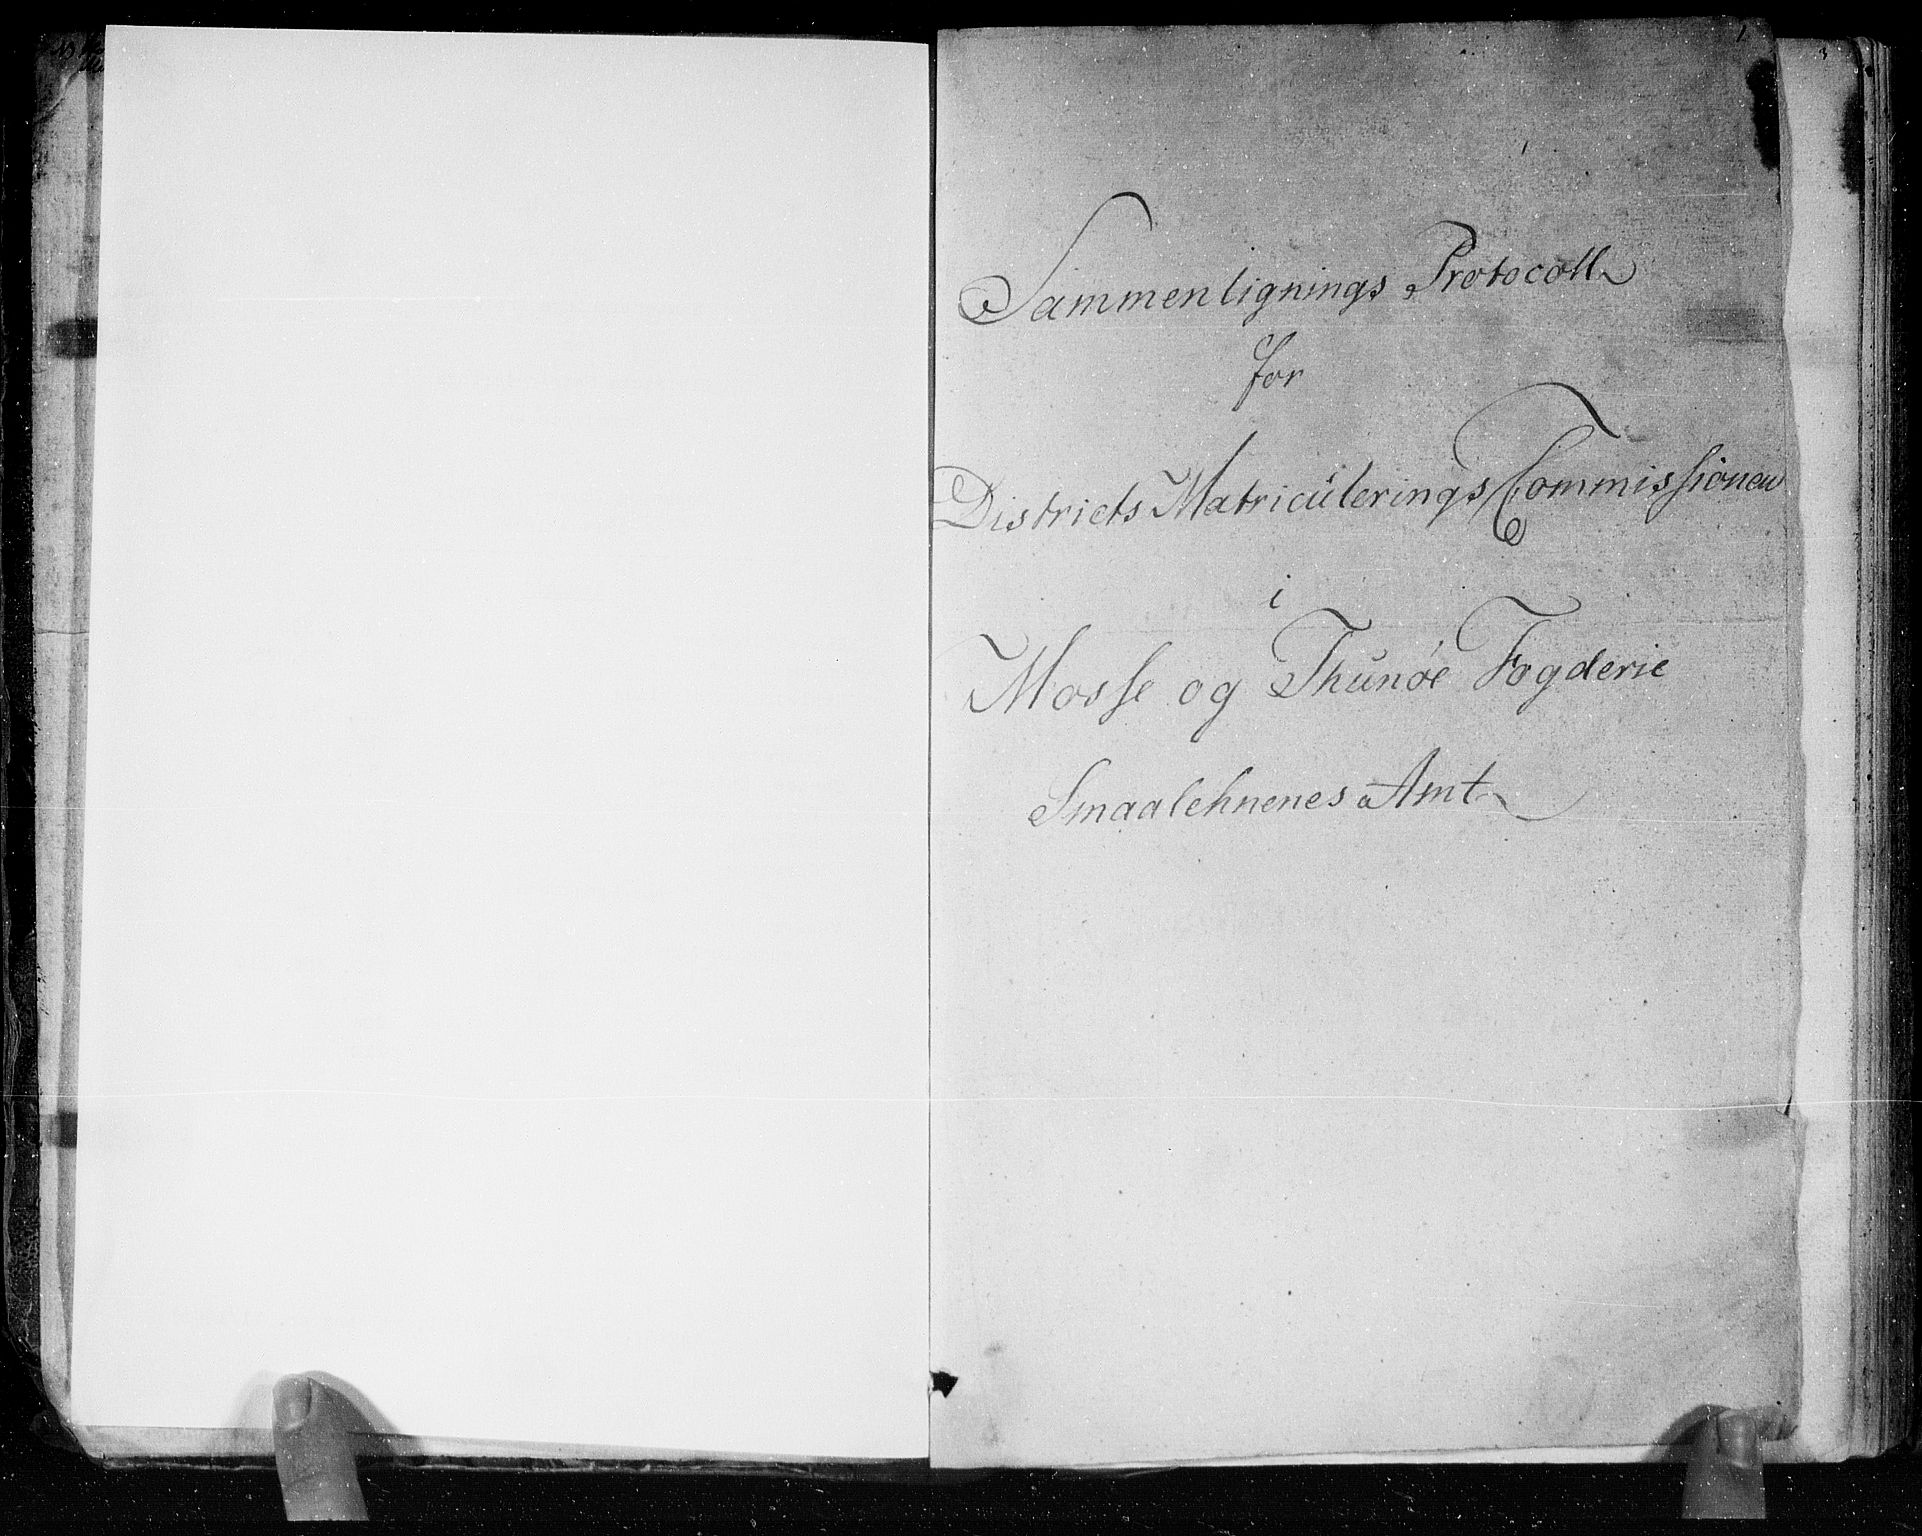 1
3
Sammenlignings Protocoll
for
Districts Matriculerings Commissionen
i
Mosse og Thunøe Fogderie
Smaalehnenes Amt